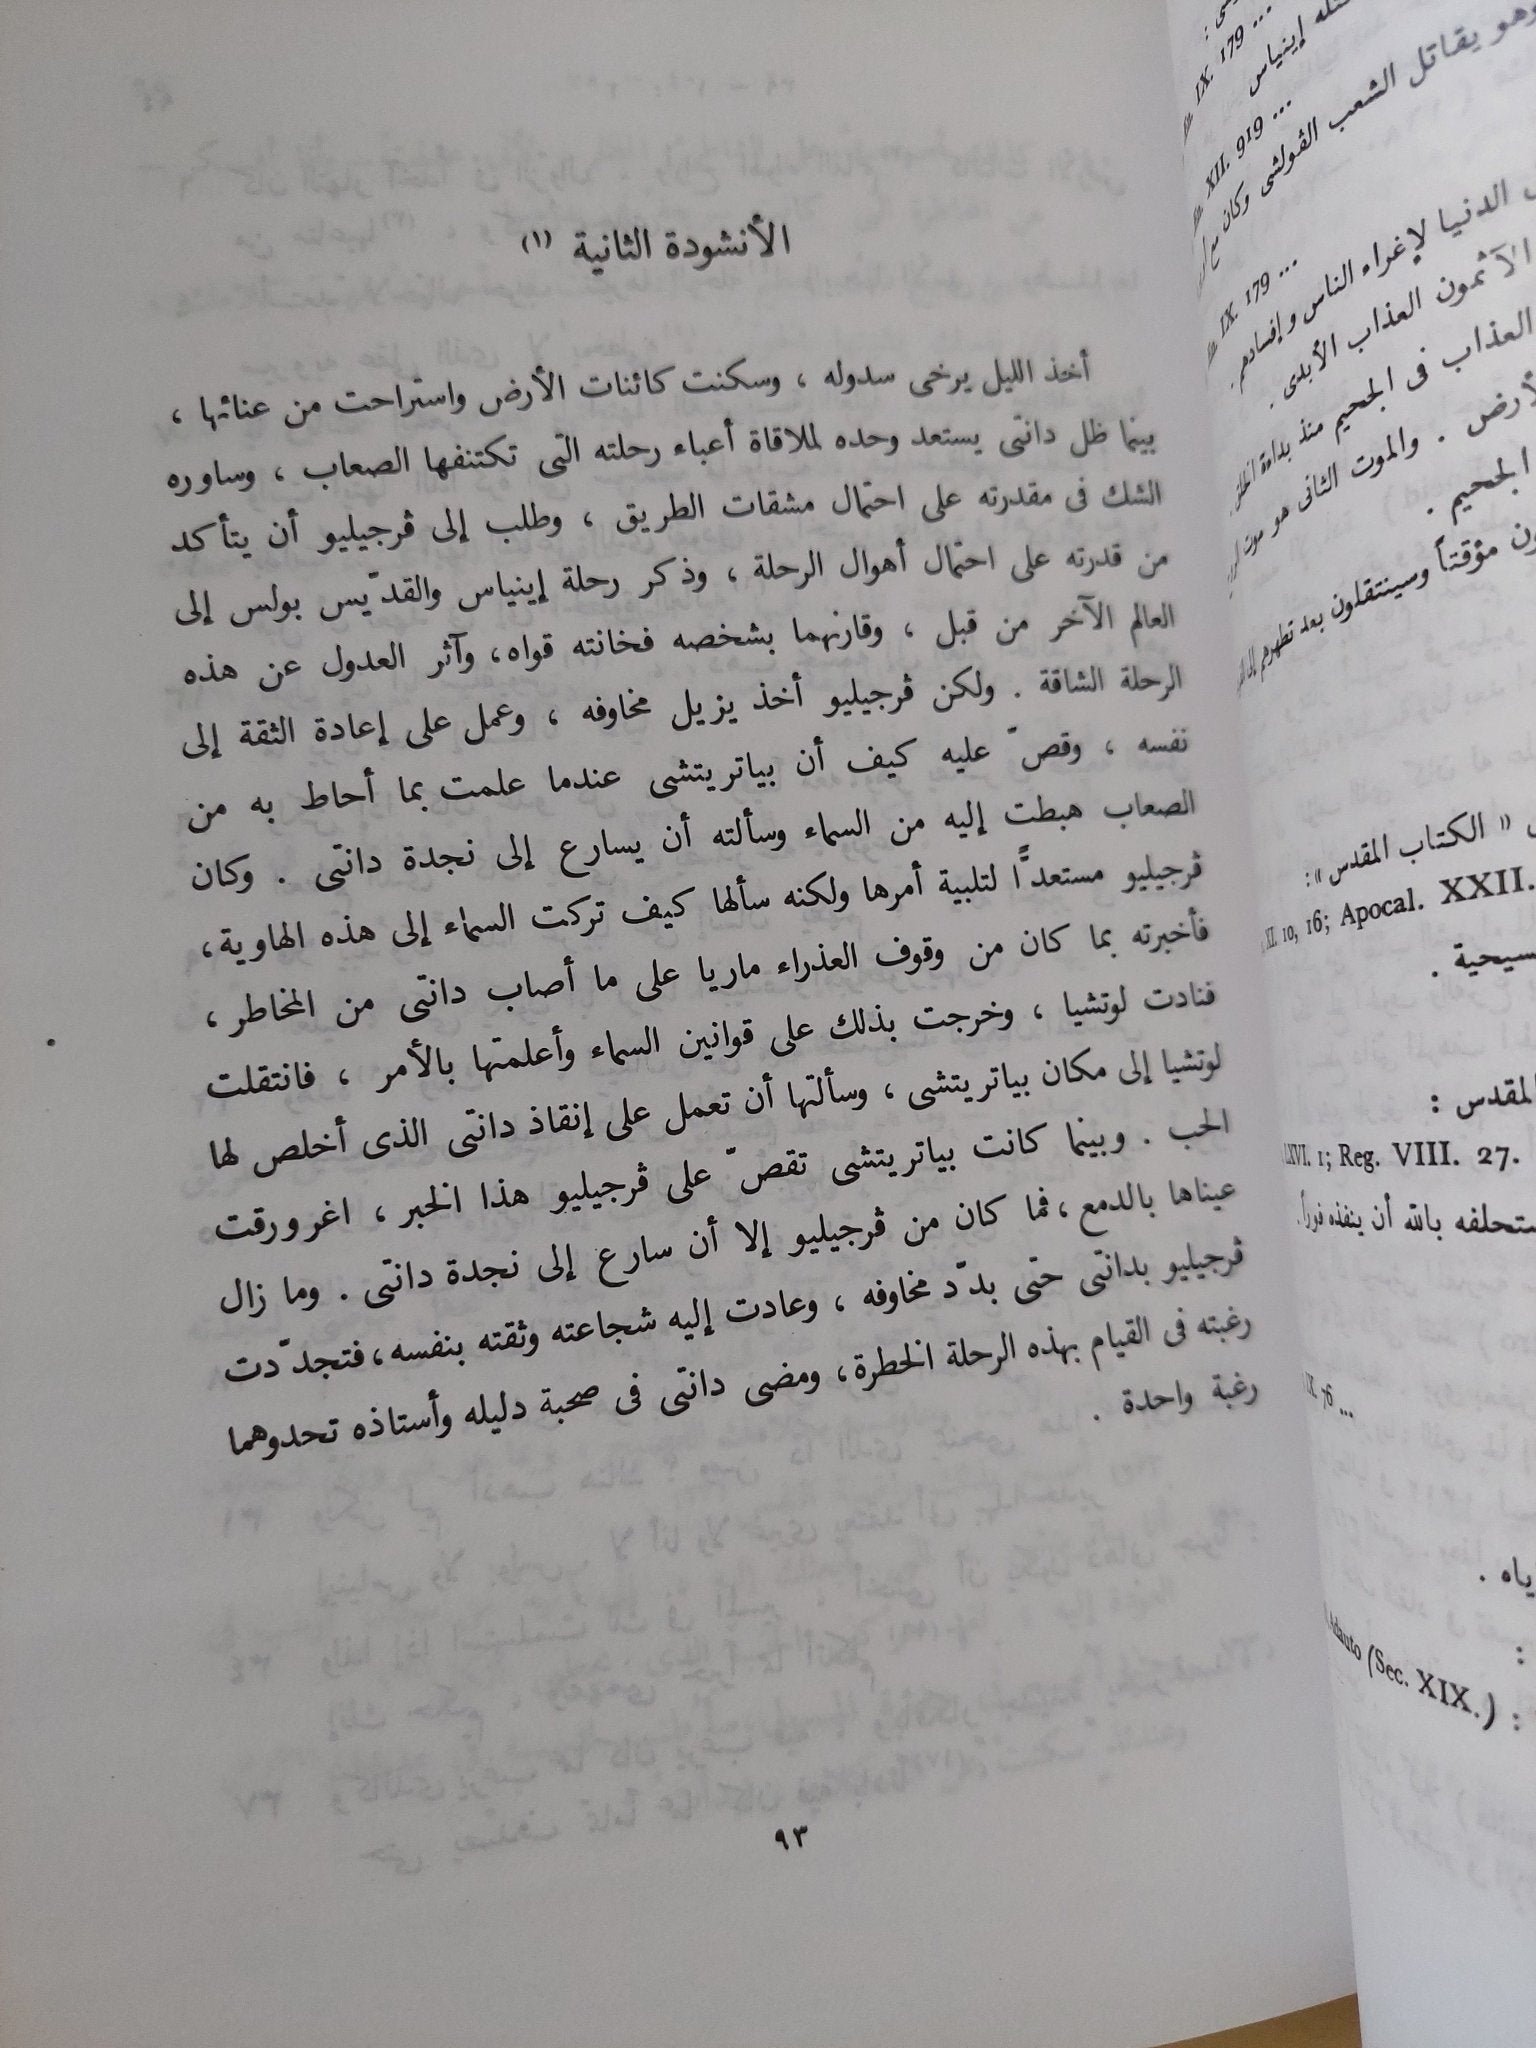 الأنشودة الثانية (١)
أخذ الليل يرخى سدوله ، وسكنت كائنات الأرض واستراحت من عنائها ،
بينما ظل دانتى يستعد وحده لملاقاة أعباء رحلته التى تكتنفها الصعاب ، وساوره
الشك فى مقدرته على احتمال مشقات الطريق ، وطلب إلى ڤرجيليو أن يتأكد
من قدرته على احتمال أهوال الرحلة ، وذكر رحلة إينياس والقدّيس بولس إلى
العالم الآخر من قبل ، وقارنهما بشخصه فخانته قواه، وآثر العدول عن هذه
الرحلة الشاقة . ولكن ڤرجيليو أخذ يزيل مخاوفه ، وعمل على إعادة الثقة إلى
نفسه ، وقصّ عليه كيف أن بياتريتشى عندما علمت بما أحاط به من
الصعاب هبطت إليه من السماء وسألته أن يسارع إلى نجدة دانتى . وكان
ڤرجيليو مستعدًّا لتلبية أمرها ولكنه سألها كيف تركت السماء إلى هذه الهاوية،
فأخبرته بما كان من وقوف العذراء ماريا على ما أصاب دانتى من المخاطر ،
فنادت لوتشيا ، وخرجت بذلك على قوانين السماء وأعلمتها بالأمر ، فانتقلت
لوتشيا إلى مكان بياتريتشى ، وسألتها أن تعمل على إنقاذ دانتى الذى أخلص لها
الحب . وبينما كانت بياتريتشى تقصّ على ڤرجيليو هذا الخبر ، اغرورقت
عيناها بالدمع ، فما كان من ڤرجيليو إلا أن سارع إلى نجدة دانتى . وما زال
ڤرجيليو بدانتى حتى بدّد مخاوفه ، وعادت إليه شجاعته وثقته بنفسه، فتجدّدت
رغبته فى القيام بهذه الرحلة الخطرة، ومضى دانتى فى صحبة دليله وأستاذه تحدوهما
رغبة واحدة .
٩٣
إينياس
IX. 179 ...
XII. 919 ...
وهو يقاتل الشعب الڤولشى وكان مع
IX. 179 ...
الدنيا لإغراء الناس وإفسادهم .
الآثمون العذاب الأبدى .
العذاب فى الجحيم منذ بداءة
. والموت الثانى هو موت
الجحيم .
مؤقتاً وسينتقلون بعد تطهرهم
« الكتاب المقدس »:
II. 10, 16; Apocal. XXII.
المقدس :
LXVI. 1; Reg. VIII. 27.
بالله أن ينفذه فوراً.
IX. 76 ...
Adauto (Sec. XIX.) :